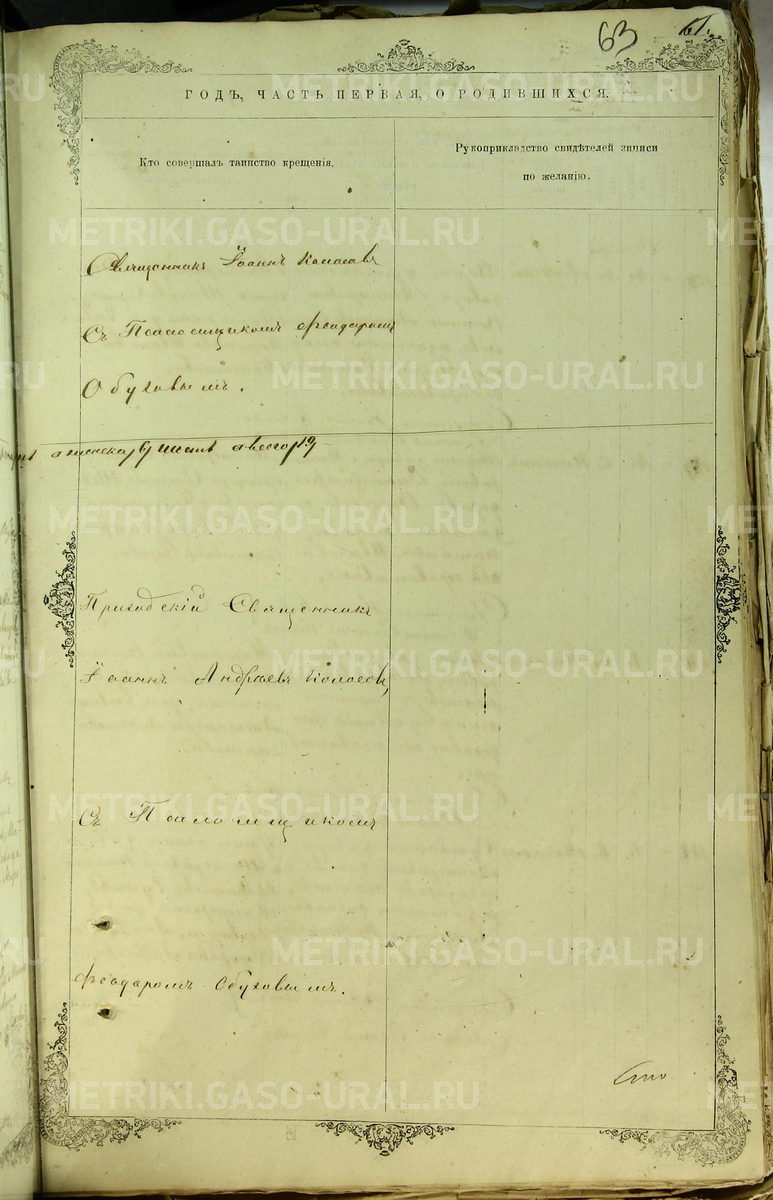 63 61.
ГОДЪ, ЧАСТЬ ПЕРВАЯ, О РОДИВШИХСЯ.
Кто совершалъ таинство крещенія.
Рукоприкладство свидѣтелей записи
по желанію.
METRIKI.GASO-URAL.RU
Священникъ Іоаннъ Колосовъ
Съ Псаломщикомъ Феодаромъ
METRIKI.GASO-URAL.RU
Обуховымъ.
METRIKI.GASO-URAL.RU
Приходскій Священникъ
METRIKI.GASO-URAL.RU
Іоаннъ Андреевъ Колосовъ,
METRIKI.GASO-URAL.RU
Съ Псаломщикомъ
METRIKI.GASO-URAL.RU
Феодаромъ Обуховымъ.
METRIKI.GASO-URAL.RU